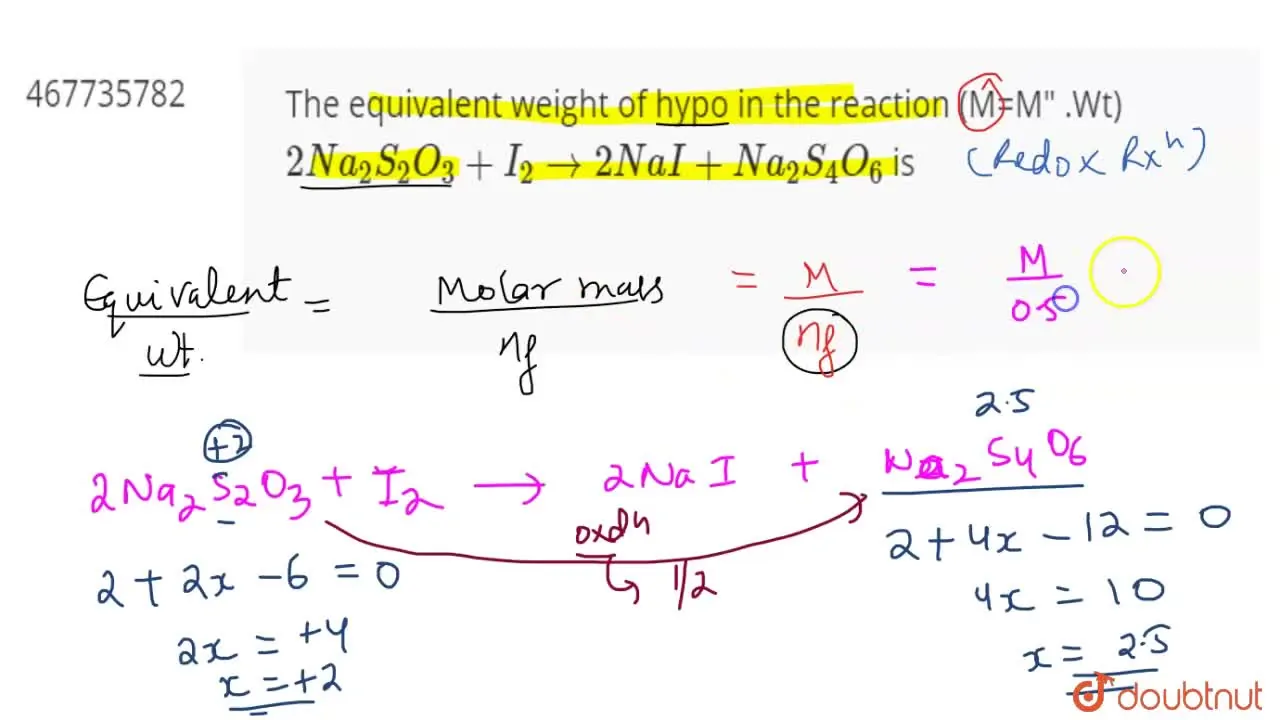 467735782
The equivalent weight of hypo in the reaction (M=M" .Wt)
2Na₂S₂O₃ + I₂ → 2NaI + Na₂S₄O₆ is
(Redox Rxⁿ)
Equivalent Wt. = Molar mass / nf = M / nf = M / 0.5
+2
2.5
2Na₂S₂O₃ + I₂ → 2NaI + Na₂S₄O₆
oxdn
1/2
2 + 2x - 6 = 0
2x = +4
x = +2
2 + 4x - 12 = 0
4x = 10
x = 2.5
doubtnut